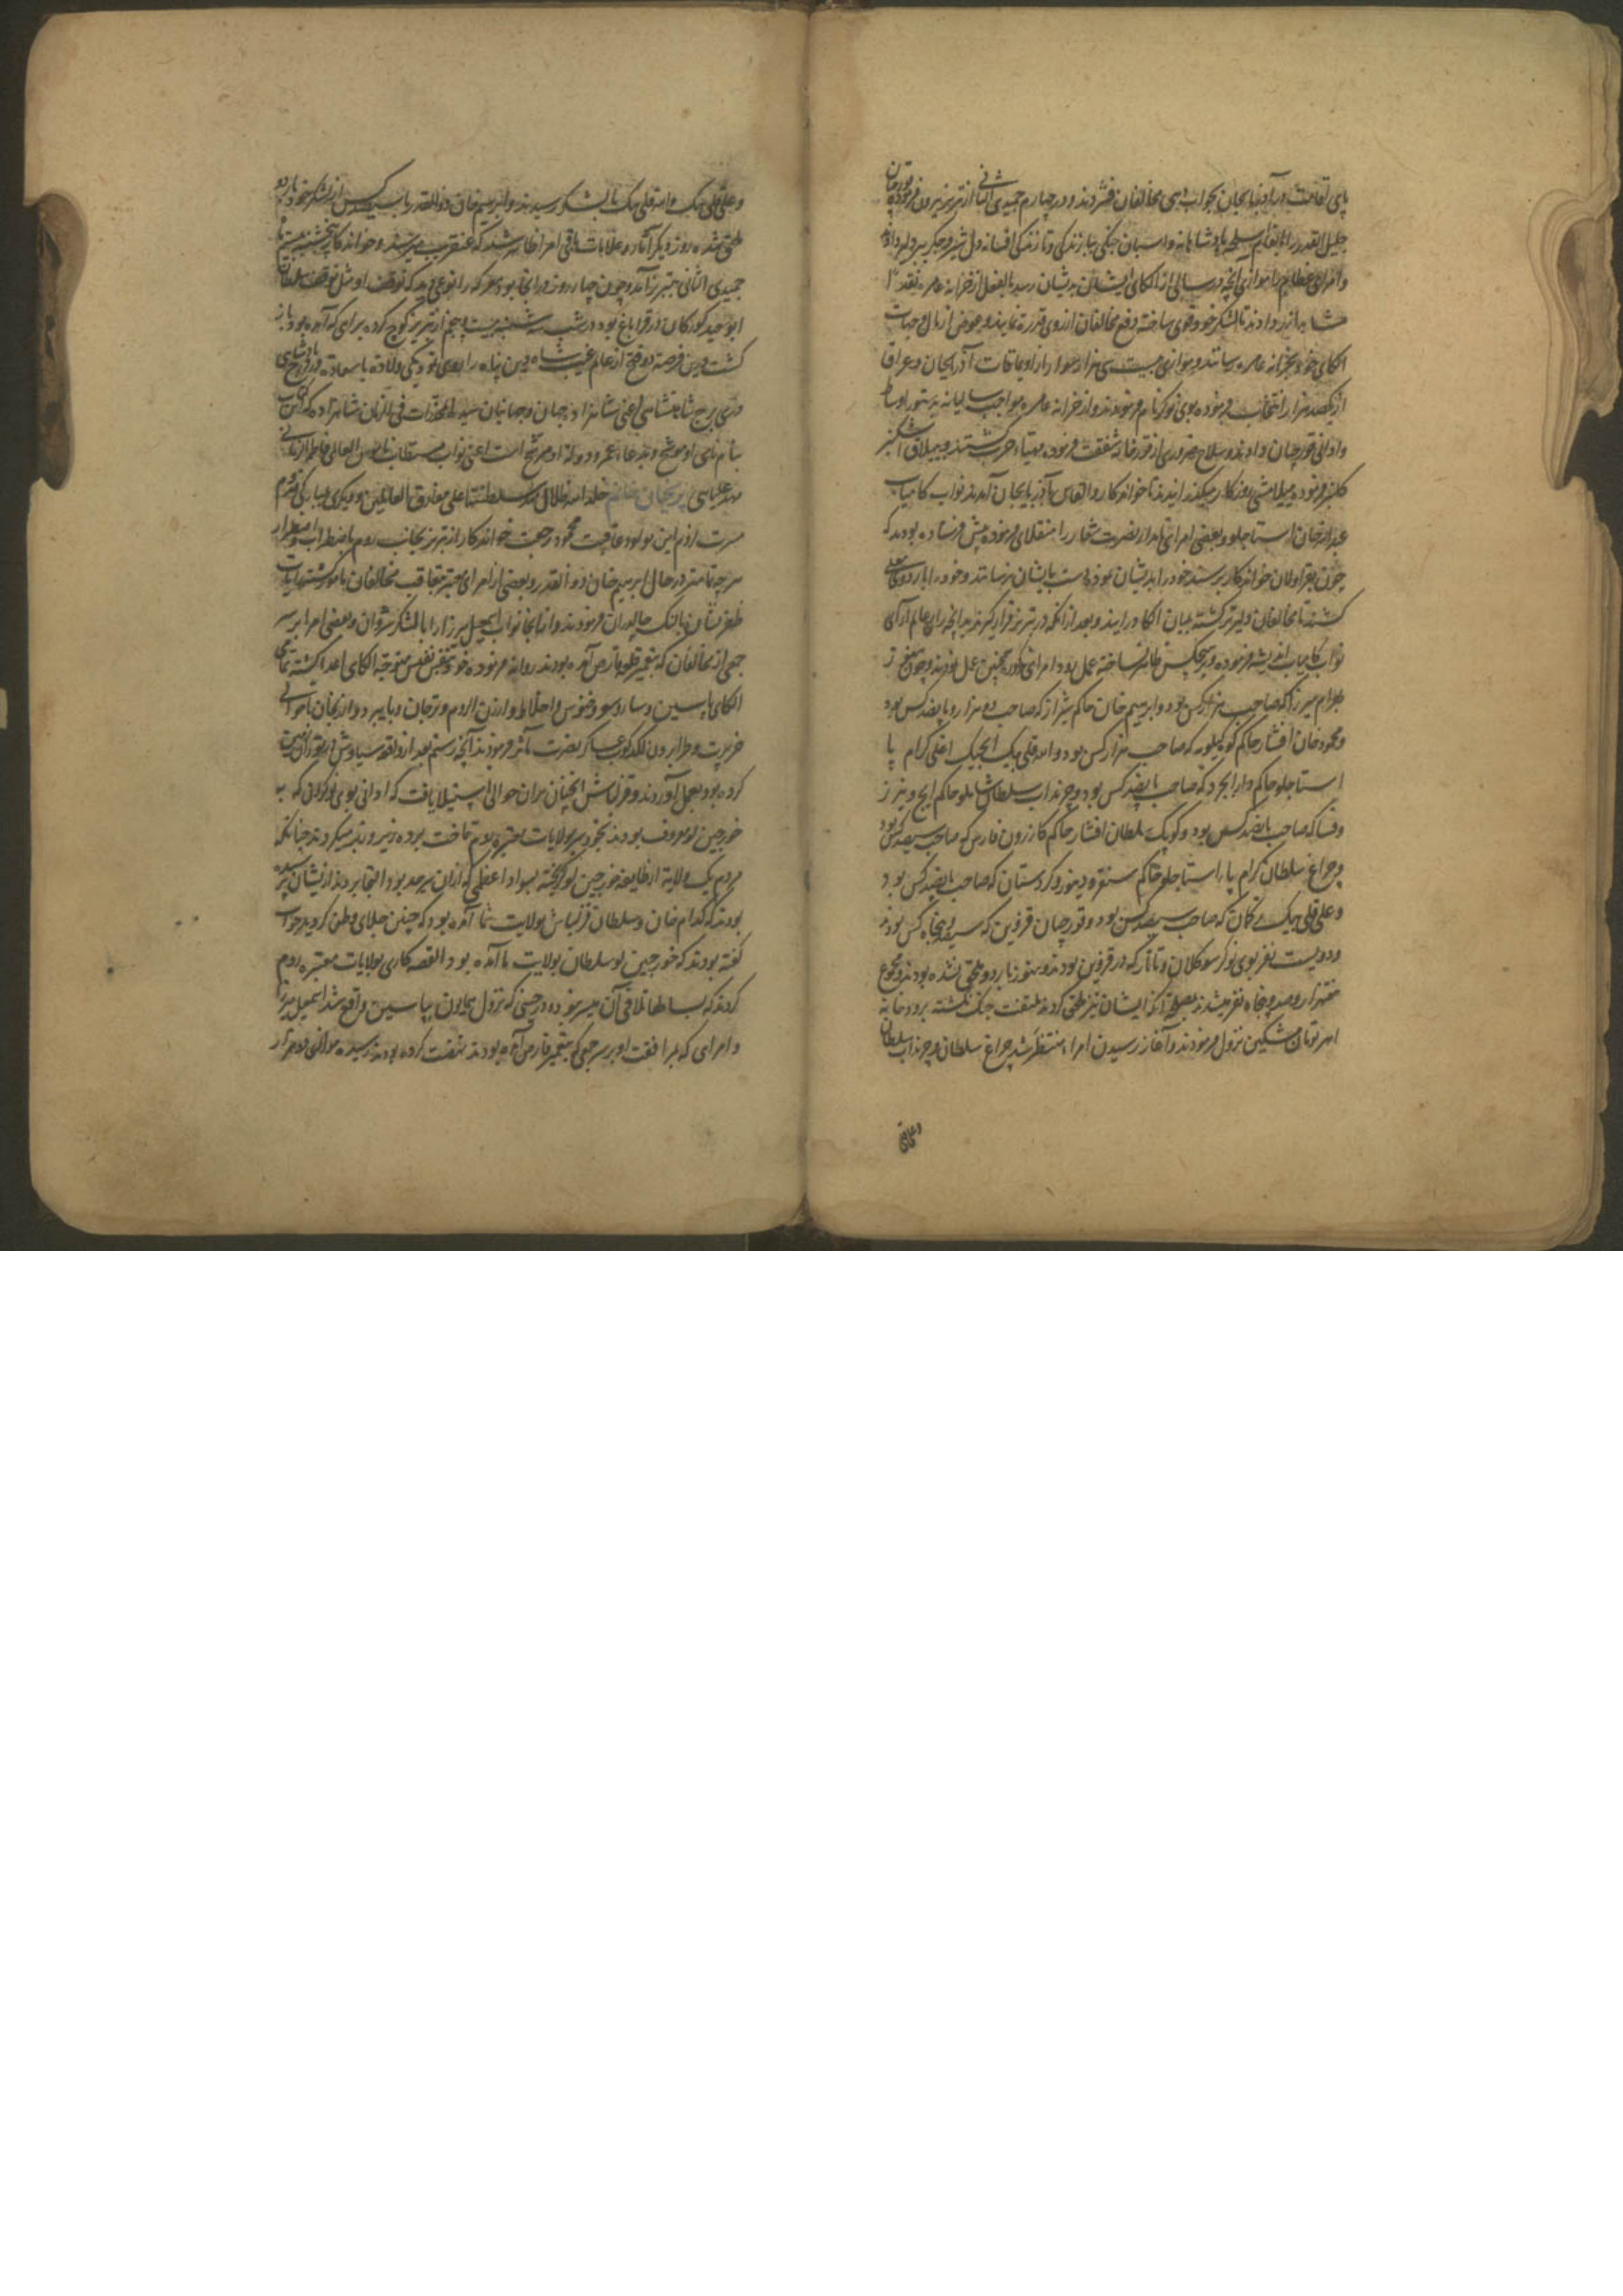 پای اقامت در آذربایجان بجواب دهی مخالفان فشردند و در چهارم جمیدی الثانی از تبریز بیرون فرموده قورچیان
جلیل القدر را بانعام اسلحه پادشاهانه و اسبان جنگی
و امرای عظام را موازی آنچه در سالی از الکای ایشان بدیشان رسد بالفعل از خزانه عامره نقد
دادند تا لشکر خود قوی ساخته دفع مخالفان از روی قدرة نمایند و عوض از مال وجهات
الکای خود بخزانه عامره رسانند و موازی بیست سی هزار سوار از اویماقات آذربایجان و عراق
از یکصد هزار انتخاب فرموده بوی نوکر نام فرمودند و از خزانه عامره مواجب سالیانه بدستور اوسط
و ادانی قورچیان دادند و سلاح ضروری از قورخانه شفقت فرموده مهیاء حرب گشتند و بییلاق اشکنبر
روزگار میگذرانیدند تا خواندکار و القاس بآذربایجان آمدند نواب کامیاب
عبدالله خان استاجلو و بعضی امرای نامدار نصرت شعار را منقلای فرموده پیش فرستاده بودند که
چون بقراولان خواندکار برسند خود را بدیشان نموده دست بایشان نرسانند و خود را باردوی معلی
کشند تا مخالفان دلیرتر گشته بمیان الکا درایند و بعد از آنکه در تبریز قرار گیرند بدانچه رای عالم آرای
نواب کامیاب اندیشه فرموده و بهیچکس ظاهر نساخته عمل رود امرای مذکوره همچنین عمل نمودند و چون هنوز
بهرام میرزا که صاحب هزار کس بود و ابرهیم خان حاکم شیراز که صاحب دو هزار و پانصد کس بود
و محمود خان افشار حاکم کوه کیلویه که صاحب هزار کس بود و الله قلی بیک ایجیک اغلی کرام پا
استاجلو حاکم دارابجرد که صاحب پانصد کس بود و چرنداب سلطان شاملو حاکم ایج و نیرز
و فسا که صاحب پانصد کس بود و کوپک سلطان افشار حاکم کازرون فارس که صاحب سیصد کس بود
و چراغ سلطان کرام پا استاجلو حاکم سنقر و دینور و کردستان که صاحب پانصد کس بود
و علی قلی بیک ترکمان که صاحب سیصد کس بود و قورچیان قزوین که سیصد و پنجاه کس بودند
و دویست نفر بوی نوکر سوکلان و تاتار که در قزوین بودند و هنوز باردو ملحق نشده بودند و مجموع
هفتهزار و صد و پنجاه نفر میشدند بصلاح آنکه ایشان نیز ملحق گردند ملتفت جنگ نگشته برودخانه
اهر تومان مشکین نزول فرمودند و آغاز رسیدن امراء منتظر شد چراغ سلطان و چرنداب سلطان
و علی قلی
و علی قلی بیک و الله قلی بیک با لشکر رسیدند و ابرهیم خان ذوالقدر با سیصد کس از لشکر خود باردو
ملحق شده روز دیگر آثار و علامات باقی امرا ظاهر شد که عنقریب میرسند و خواندکار پنجشنبه بیستم
جمیدی الثانی بتبریز آمد و چون چهار روز در آنجا بود معرکه را نوعی دید که توقف او مثل توقف سلطان
ابوسعید کورکان در قراباغ بود در شب سه شنبه بیست و پنجم از تبریز کوچ کرده براهی که آمده بود باز
گشت و درین فرصة دو فتح از عالم غیب شاه دین پناه را روی نمود یکی ولادة باسعادة
دری برج شاهنشاهی اعنی شاهزاده جهان و جهانیان سیدة المخدرات فی الزمان شاهزاده که این کتاب
بنام نامی او موشح و بدعاء عمر و دولة او مرشح است اعنی نواب مستطاب ناموس العالمی فاطمة الزمانی
مهد علیایی پریجان خانم خلد الله ظلال سلطنتها علی مفارق العالمین و دیگری بمبارکی قدوم
مسرت لزوم این مولود عاقبت محمود رجعت خواندکار از تبریز بجانب روم باضطراب و اضطرار
هر چه تمامتر در حال ابرهیم خان ذوالقدر و بعضی از امرای معتبر بتعاقب مخالفان مامور گشته رایات
ظفر نشان بالنک چالدران فرمودند و از آنجا نواب اسمعیل میرزا را با لشکر شروان و بعضی امرا بر سر
جمعی از مخالفان که بتعمیر قلعه قارص آمده بودند روانه فرموده خود بنفس نفیس متوجه الکای اعدا گشته تمامی
الکای پاسین و سارو سو و خنوس و اخلاط و ارزن الروم و ترجان و بایبرد و ارزنجان تا حوالی
خرپرت و طرابزون لگدکوب عساکر نصرت مآثر فرمودند آنچه رستم بعد از واقعه سیاوش در توران زمین
کرده بود بعمل آوردند و قزلباش آنچنان بران حوالی استیلا یافت که ادانی بوی نوکرانی که به
خورجین لو معروف بودند بخود سر بولایات معتبره روم تاخت برده زیر و زبر میکردند چنانکه
مردم یک ولایة از طایفه خورجین لو گریخته بسواد اعظمی که ازان سرحد بود التجا بردند از ایشان پرسیده
بودند که کدام خان و سلطان قزلباش بولایت شما آمده بود که چنین جلای وطن کردید جواب
گفته بودند که خورجین لو سلطان بولایت ما آمده بود القصه کاری بولایات معتبره روم
کردند که بسالها تلافی آن میسر نبود و در حینی که نزول همایون بپاسین واقع شد اسمعیل میرزا
و امرای که بمرافقت او بر سر جمعی که بتعمیر قارص آمده بودند نهضت کرده بودند رسیده موازی دو هزار